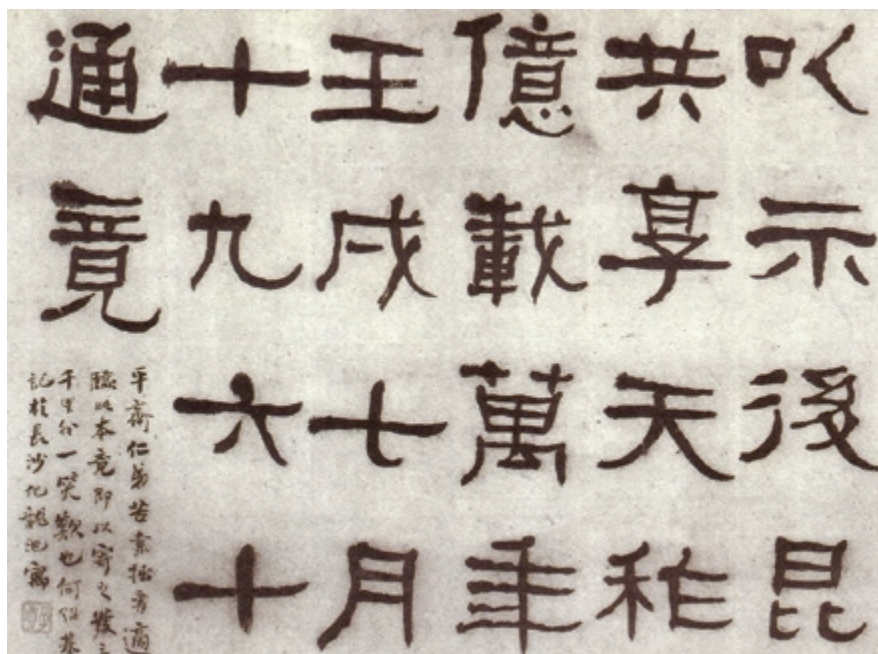 以示後昆
共享天祚
億載萬年
壬戌七月
十九六十
通竟
平齋仁弟苦索拙書適
臨此本竟即以寄之發
千里外一笑歎也何紹基
記於長沙化龍池寓